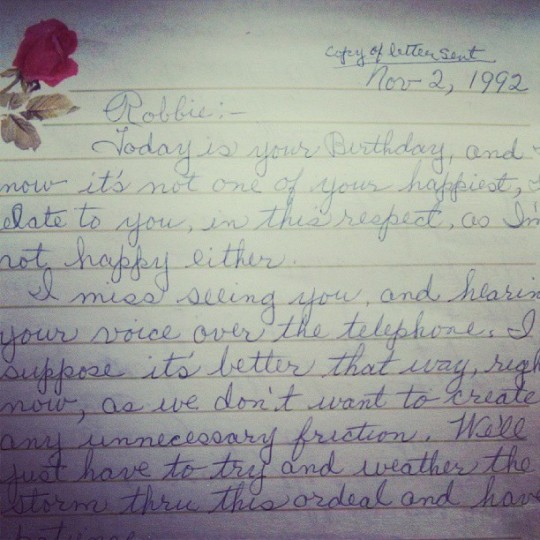 copy of letter sent
Nov 2, 1992
Robbie:-
Today is your Birthday, and
now it's not one of your happiest,
elate to you, in this respect, as I'm
not happy either.
I miss seeing you, and hearin
your voice over the telephone. I
suppose it's better that way, righ
now, as we don't want to create
any unnecessary friction. We'll
just have to try and weather the
storm thru this ordeal and have
patience.